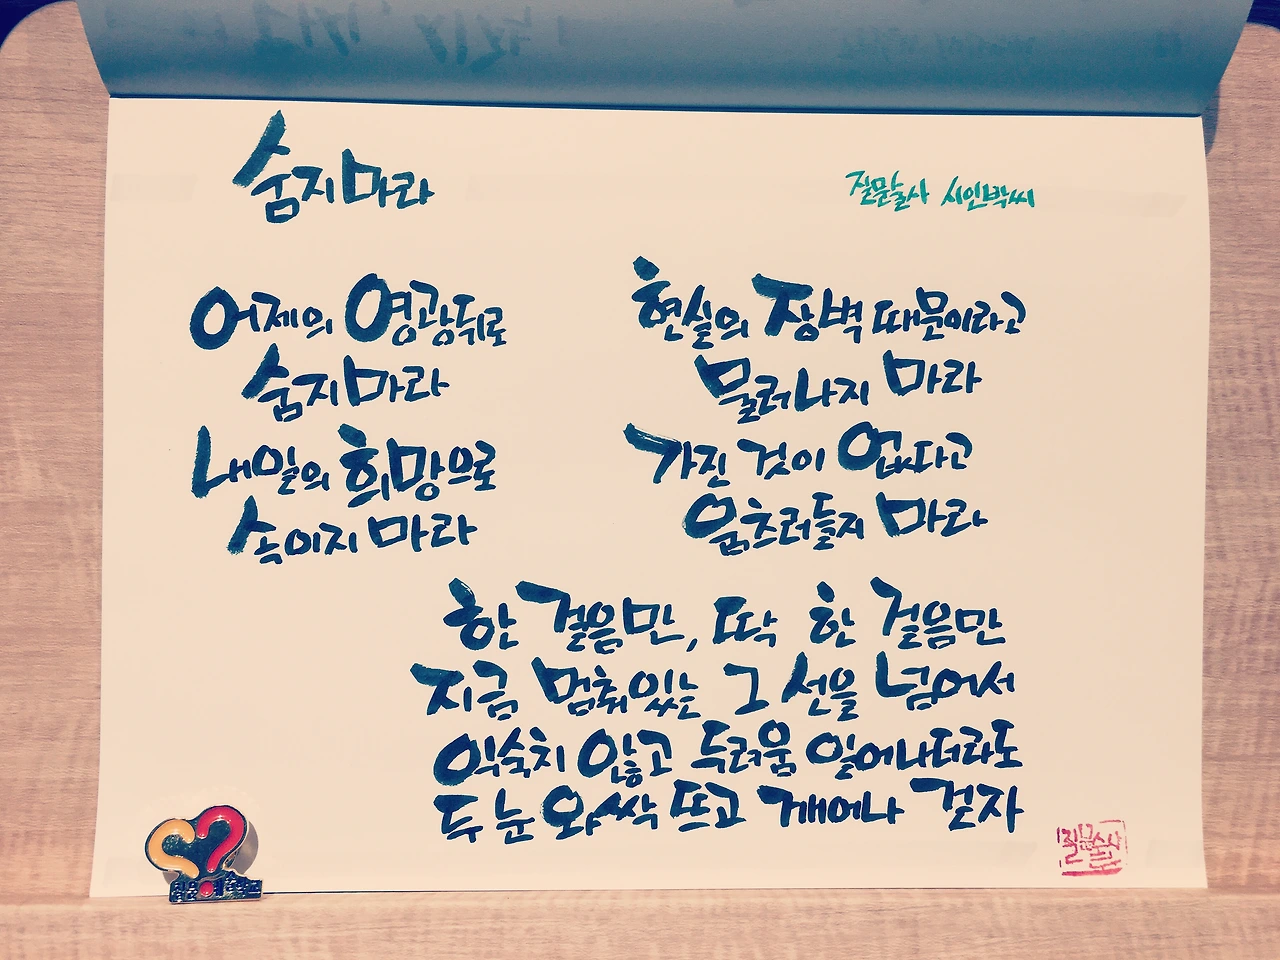 숨지마라
질문술사 시인박씨
어제의 영광뒤로
숨지마라
내일의 희망으로
속이지 마라
현실의 장벽 때문이라고
물러나지 마라
가진 것이 없다고
움츠러들지 마라
한 걸음만, 딱 한 걸음만
지금 멈춰있는 그 선을 넘어서
익숙치 않고 두려움 일어나더라도
두 눈 와싹 뜨고 깨어나 걷자
질문술사